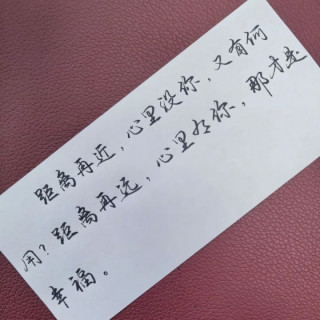 距离再近，心里没你，又有何
用？距离再远，心里有你，那才是
幸福。